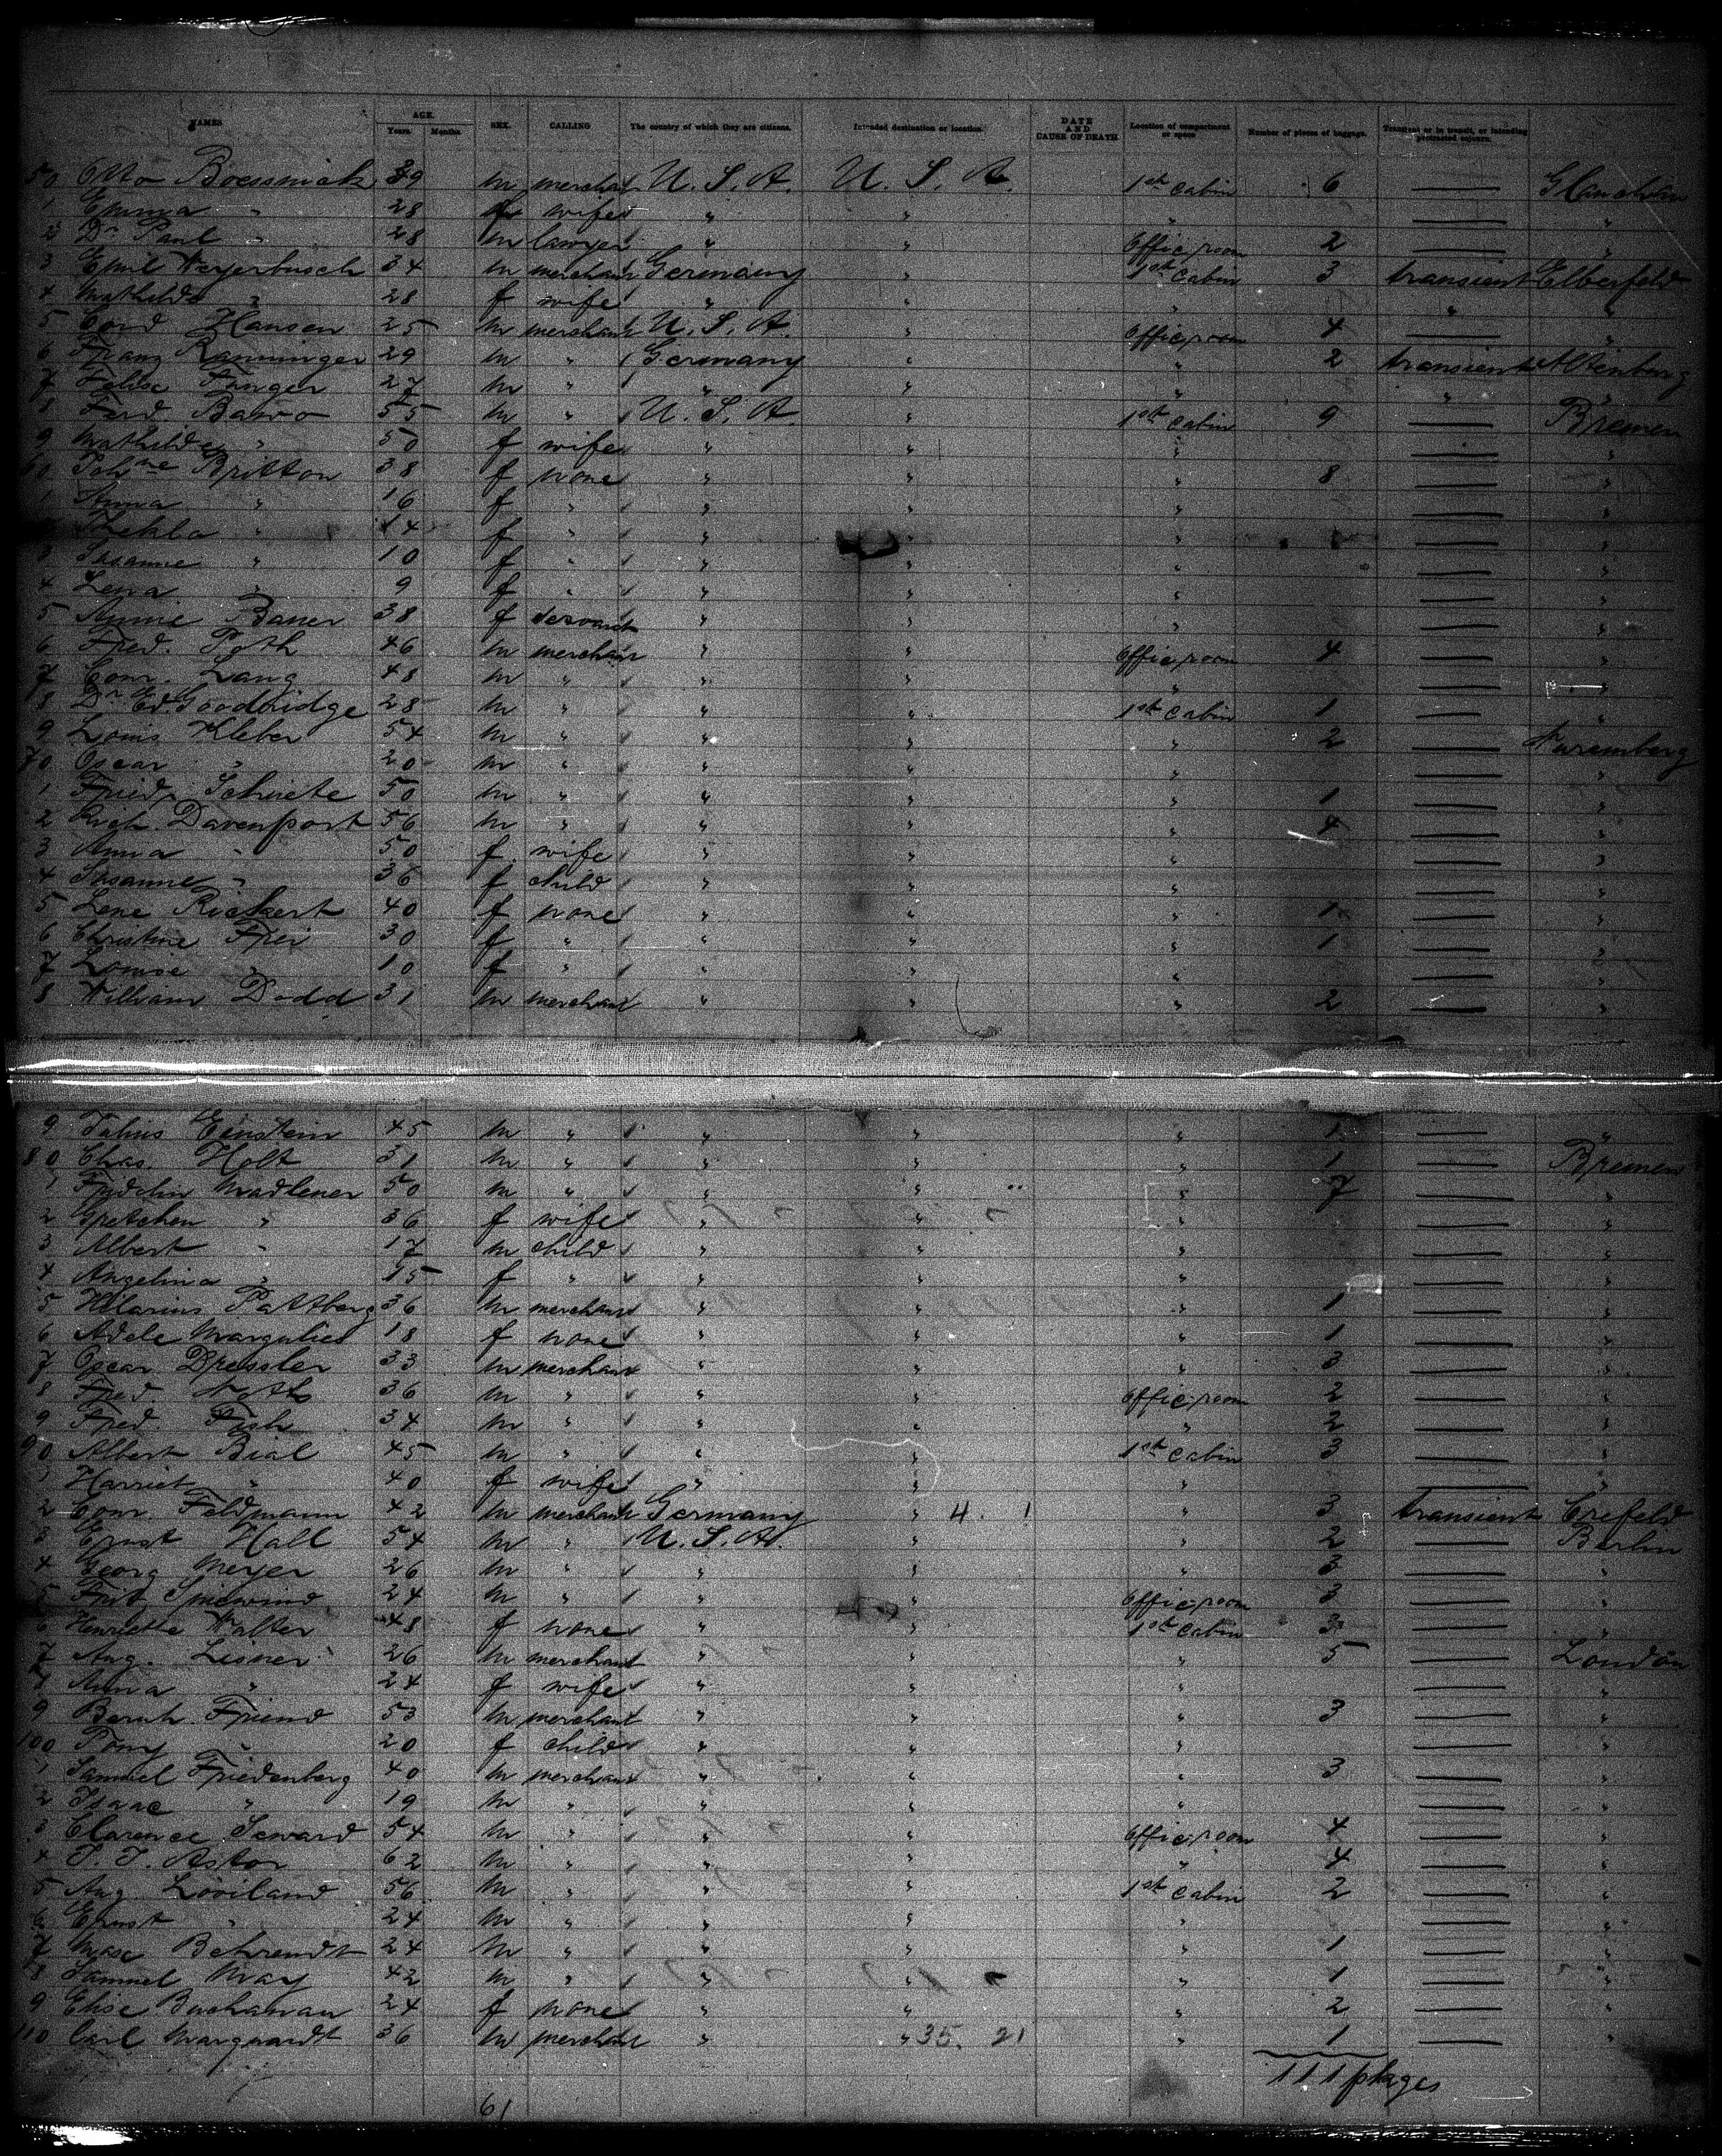 NAMES AGE. Years. Months. SEX. CALLING The country of which they are citizens. Intended destination or location. DATE AND CAUSE OF DEATH Location of compartment or space Number of pieces of baggage. Transient or in transit, or intending protracted sojourn.
50 Otto Boessneck 39 m merchant U. S. A. U. S. A. 1st cabin 6 — Glauchau
1 Emma " 28 f wife " " " — "
2 Dr Paul " 28 m lawyer " " Office room 2 — "
3 Emil Weyerbusch 34 m merchant Germany " 1st cabin 3 transient Elberfeld
4 Mathilde " 28 f wife " " " " "
5 Cord Hansen 25 m merchant U. S. A. " Office room 4 — "
6 Franz Ranninger 29 m " Germany " " 2 transient Altenburg
7 Felix Fanger 27 m " " " " " "
8 Ferd. Bawo 55 m " U. S. A. " 1st cabin 9 — Bremen
9 Mathilde " 50 f wife " " " — "
60 Britton 38 f none " " " 8 — "
1 Anna " 16 f " " " " — "
Thekla " 14 f " " " " — "
3 Susanne " 10 f " " " " — "
4 Lena " 9 f " " " " — "
5 Annie Baner 38 f servant " " " — "
6 Fred. Poth 46 m merchant " " Office room 4 — "
7 Conr. Lang 48 m " " " " — "
8 Dr Ed. Goodridge 28 m " " " 1st cabin 1 — "
9 Louis Kleber 54 m " " " " 2 — Nuremberg
70 Oscar " 20 m " " " " — "
1 Friedr. Schuete 50 m " " " " 1 — "
2 Rich. Davenport 56 m " " " " 4 — "
3 Anna " 50 f wife " " " — "
4 Susanne " 36 f child " " " — "
5 Lene Rickert 40 f none " " " 1 — "
6 Christine Frei 30 f " " " " 1 — "
7 Louise " 10 f " " " " — "
8 William Dodd 31 m merchant " " " 2 — "
9 Julius Einstein 45 m " " " " 1 — "
80 Chas. Holt 31 m " " " " 1 — Bremen
1 Fridolin Madlener 50 m " " " " 7 — "
2 Gretchen " 36 f wife " " " — "
3 Albert " 17 m child " " " — "
4 Angelina " 15 f " " " " — "
5 Hilarius Pattberg 36 m merchant " " " 1 — "
6 Adele Margulies 18 f none " " " 1 — "
7 Oscar Dressler 33 m merchant " " " 3 — "
8 Fred. 36 m " " " Office room 2 — "
9 Fred. Fish 34 m " " " " 2 — "
90 Albert Bial 45 m " " " 1st cabin 3 — "
1 Harriet " 40 f wife " " " — "
2 Conr. Feldmann 42 m merchant Germany " 4. 1 " 3 transient Crefeld
3 Ernst Hall 54 m " U. S. A. " " 2 — Berlin
4 Georg Meyer 26 m " " " " 3 — "
5 24 m " " " Office room 3 — "
6 Henriette Walter 48 f none " " 1st cabin 3 — "
7 Aug. Lisner 26 m merchant " " " 5 — London
8 Anna " 24 f wife " " " — "
9 Bernh. Friend 53 m merchant " " " 3 — "
100 20 f child " " " — "
1 Samuel Friedenberg 40 m merchant " " " 3 — "
2 Isaac " 19 m " " " " — "
3 Clarence Seward 54 m " " " Office room 4 — "
4 J. J. Astor 62 m " " " " 4 — "
5 Aug. Loviland 56 m " " " 1st cabin 2 — "
6 Ernst " 24 m " " " " — "
7 Max Behrendt 24 m " " " " 1 — "
8 Samuel May 42 m " " " " 1 — "
9 Elise Buchanan 24 f none " " " 2 — "
110 Carl Marquardt 36 m merchant " " 35. 21 " 1 — "
111 pkges
61